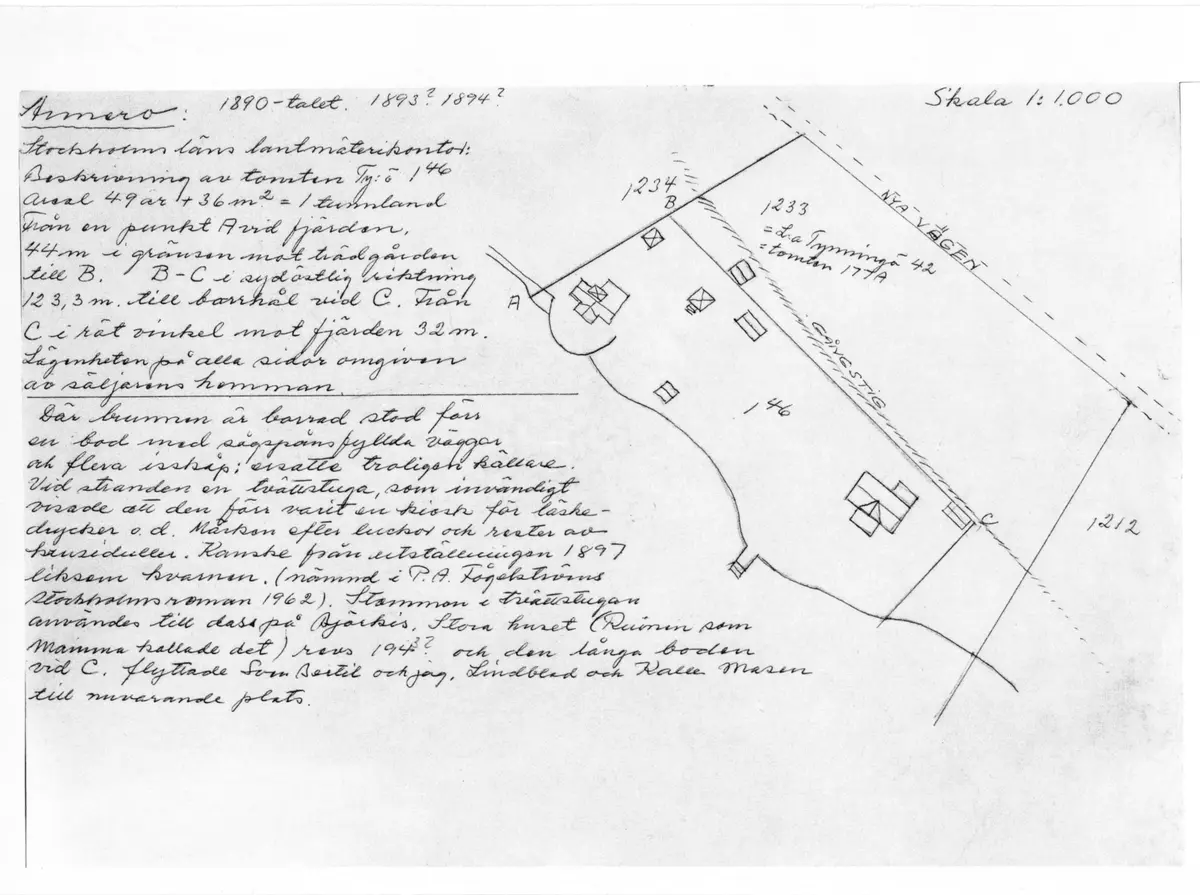 Annero: 1890-talet. 1893? 1894?
Skala 1:1.000
Stockholms läns lantmäterikontor:
Beskrivning av tomten Ty:ö 1 46
Areal 49 år + 36 m2 = 1 tunnland
Från en punkt A vid fjärden,
44 m i gränsen mot trädgården
till B. B-C i sydöstlig riktning
123,3 m. till borrhål vid C. Från
C i rät vinkel mot fjärden 32 m.
Lägenheten på alla sidor omgiven
av säljarens hemman.
Där brunnen är borrad stod förr
en bod med sågspånsfyllda väggar
och flera isskåp; ersatte troligen källare.
Vid stranden en tvättstuga, som invändigt
visade att den förr varit en kiosk för läske-
drycker o.d. Märken efter luckor och rester av
krusiduller. Kanske från utställningen 1897
liksom kvarnen. (nämnd i P.A. Fogelströms
Stockholmsroman 1962). Stommen i tvättstugan
användes till dass på Björkis. Stora huset (Ruinen som
Mamma kallade det) revs 194?? och den långa boden
vid C. flyttade Sven Bertil och jag, Lindblad och Kalle Masen
till nuvarande plats.
1234
B
1233
= L:a Tynningö 42
= tomten 177A
NYA VÄGEN
A
GÅNGSTIG
1 46
C
1212